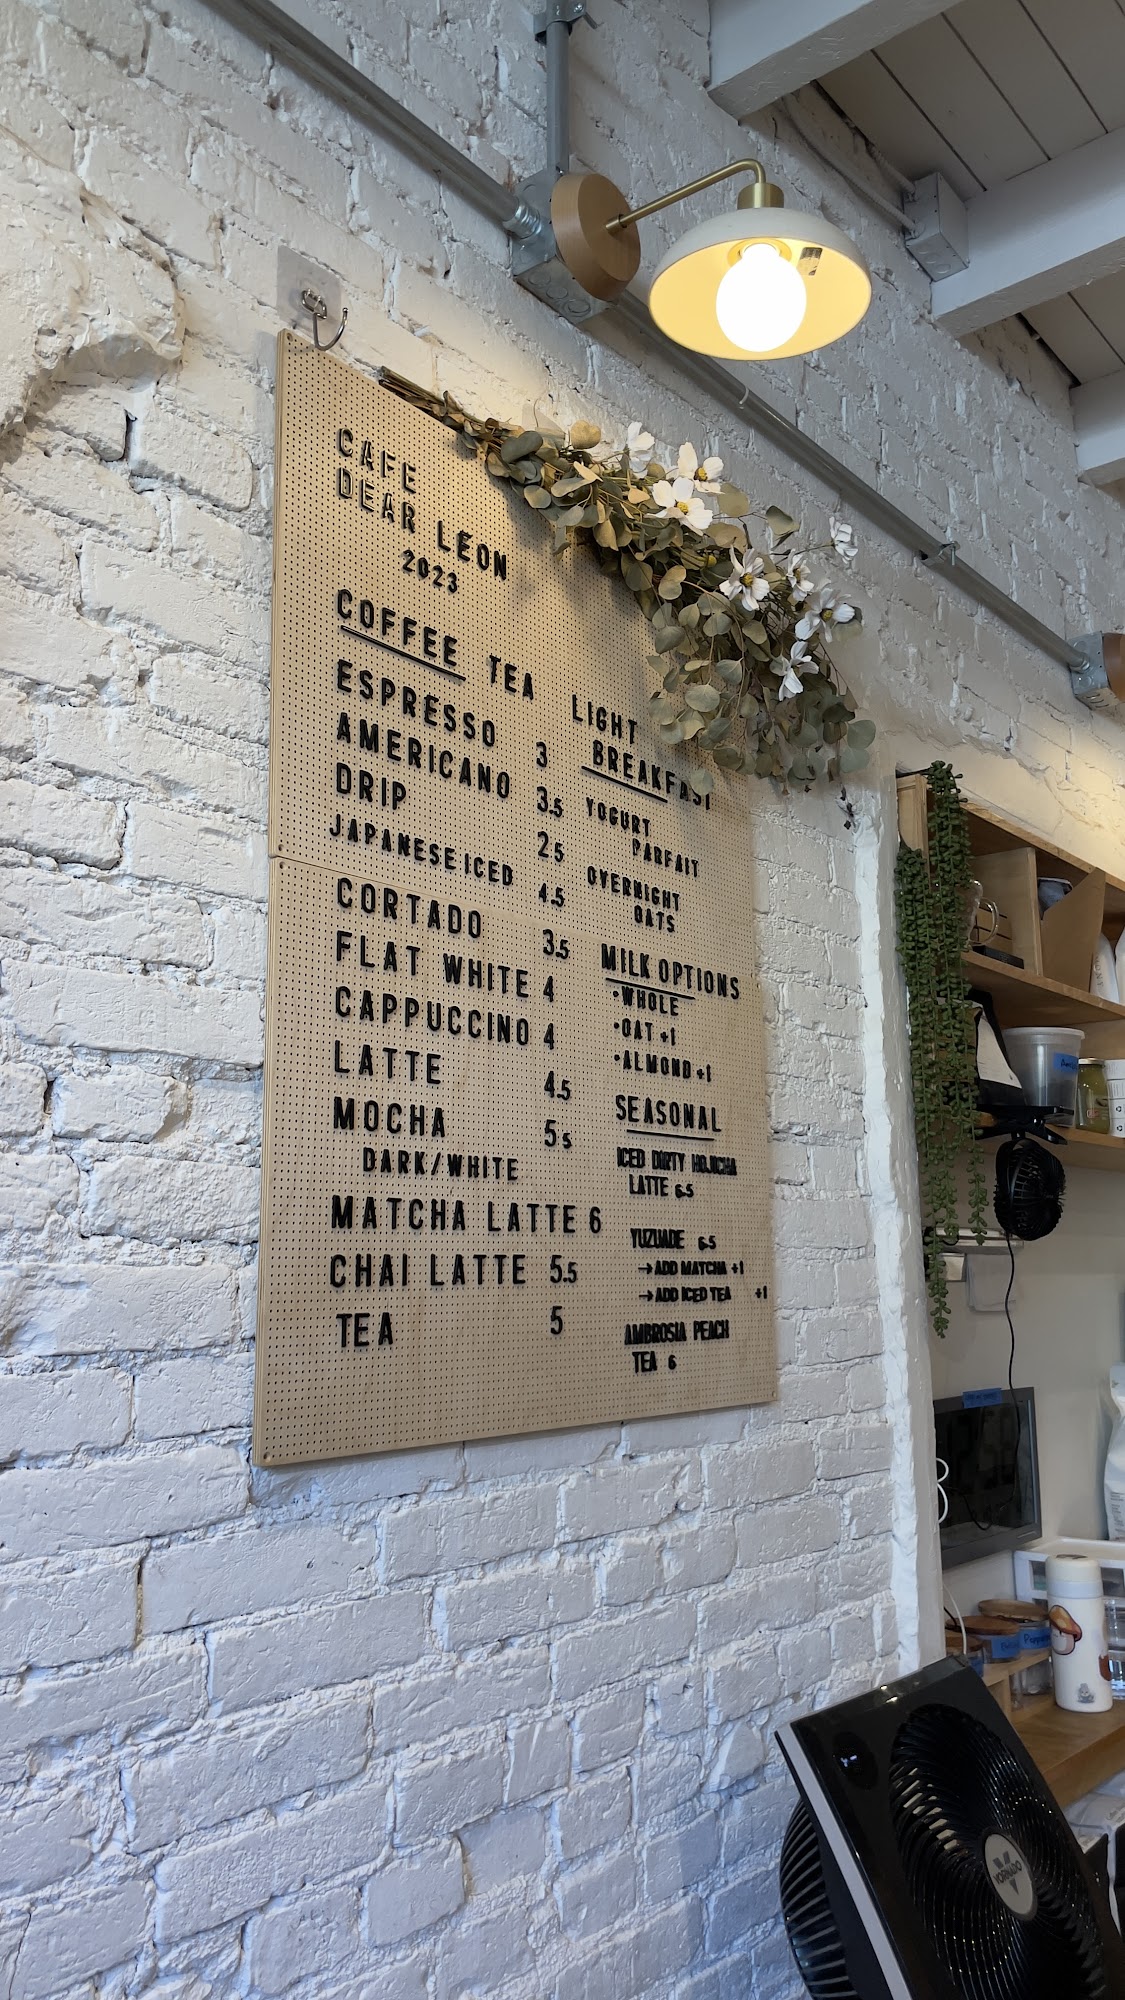 CAFE
DEAR LEON
2023
COFFEE TEA
ESPRESSO 3
AMERICANO 3.5
DRIP 2.5
JAPANESE ICED 4.5
CORTADO 3.5
FLAT WHITE 4
CAPPUCCINO 4
LATTE 4.5
MOCHA 5.5
DARK/WHITE
MATCHA LATTE 6
CHAI LATTE 5.5
TEA 5
LIGHT
BREAKFAST
YOGURT
PARFAIT
OVERNIGHT
OATS
MILK OPTIONS
•WHOLE
•OAT +1
•ALMOND +1
SEASONAL
ICED DIRTY HOJICHA
LATTE 6.5
YUZUADE 6.5
→ADD MATCHA +1
→ADD ICED TEA +1
AMBROSIA PEACH
TEA 6
VORNADO